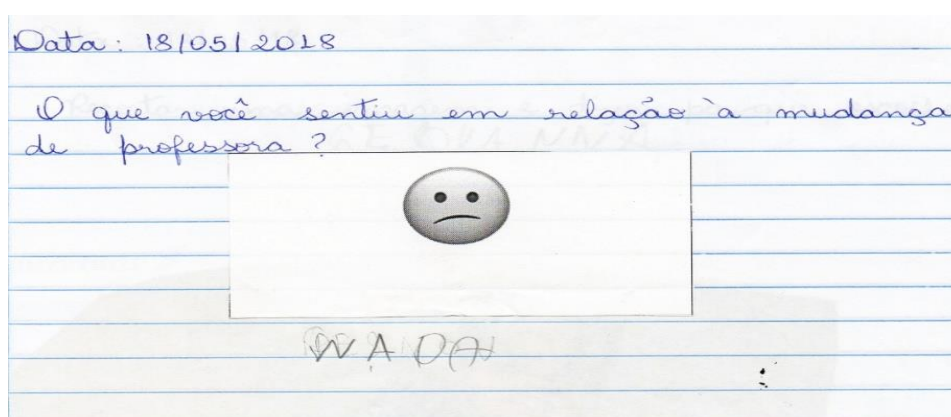 Data: 18/05/2018
O que você sentiu em relação à mudança
de professora?